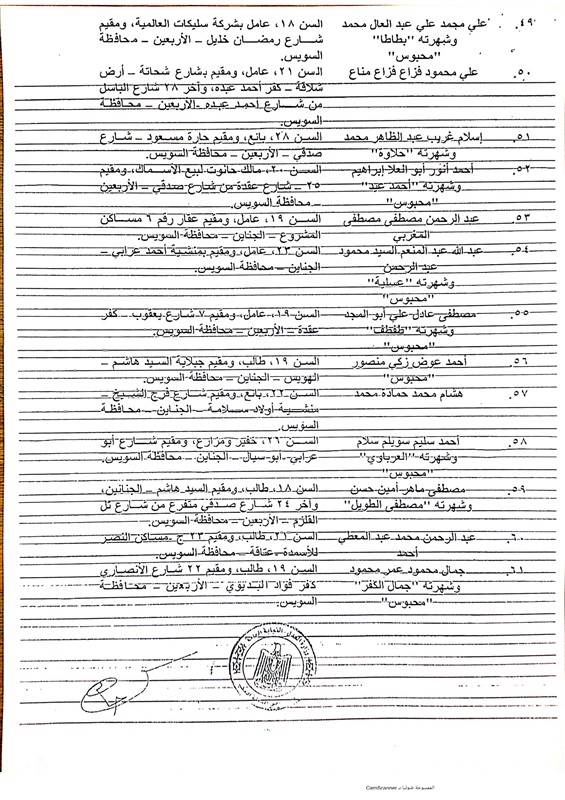 ٤٩. علي محمد علي عبد العال محمد السن ١٨، عامل بشركة سليكات العالمية، ومقيم
وشهرته "بطاطا" شارع رمضان خليل – الأربعين – محافظة
"محبوس" السويس.
٥٠. علي محمود فزاع فزاع مناع السن ٢١، عامل، ومقيم بشارع شحاتة – أرض
شلاقة – كفر أحمد عبده، وآخر ٢٨ شارع الباسل
من شارع أحمد عبده – الأربعين – محافظة
السويس.
٥١. إسلام غريب عبد الظاهر محمد السن ٢٨، بائع، ومقيم حارة مسعود – شارع
وشهرته "حلاوة" صدقي – الأربعين – محافظة السويس.
٥٢. أحمد أنور أبو العلا إبراهيم السن ٢٠، مالك حانوت لبيع الأسماك، ومقيم
وشهرته "أحمد عبد" ٢٥ – شارع عقدة من شارع صدقي – الأربعين
"محبوس" – محافظة السويس.
٥٣. عبد الرحمن مصطفى مصطفى السن ١٩، عامل، ومقيم عقار رقم ٦ مساكن
المغربي المشروع – الجناين – محافظة السويس.
٥٤. عبد الله عبد المنعم السيد محمود السن ٢٣، عامل، ومقيم بمنشية أحمد عرابي –
عبد الرحمن الجناين – محافظة السويس.
وشهرته "عسلية"
"محبوس"
٥٥. مصطفى عادل علي أبو المجد السن ١٩، عامل، ومقيم ٧ شارع يعقوب – كفر
وشهرته "طفطف" عقدة – الأربعين – محافظة السويس.
"محبوس"
٥٦. أحمد عوض زكي منصور السن ١٩، طالب، ومقيم جبلاية السيد هاشم –
"محبوس" الهويس – الجناين – محافظة السويس.
٥٧. هشام محمد حمادة محمد السن ٢٦، بائع، ومقيم شارع فرج الشيخ –
منشية أولاد سلامة – الجناين – محافظة
السويس.
٥٨. أحمد سليم سويلم سلام السن ٢٦، خفير ومزارع، ومقيم شارع أبو
وشهرته "العرباوي" عرابي – أبو سيال – الجناين – محافظة السويس.
"محبوس"
٥٩. مصطفى ماهر أمين حسن السن ١٨، طالب، ومقيم السيد هاشم – الجنانين،
وشهرته "مصطفى الطويل" وآخر ٢٤ شارع صدقي متفرع من شارع تل
القلزم – الأربعين – محافظة السويس.
٦٠. عبد الرحمن محمد عبد المعطي السن ٢١، طالب، ومقيم ٢٣ ج – مساكن النصر
أحمد للأسمدة – عتاقة – محافظة السويس.
٦١. جمال محمود عمر محمود السن ١٩، طالب، ومقيم ٢٢ شارع الأنصاري
وشهرته "جمال الكفر" كفر فؤاد البديوي – الأربعين – محافظة
"محبوس" السويس.
CamScanner